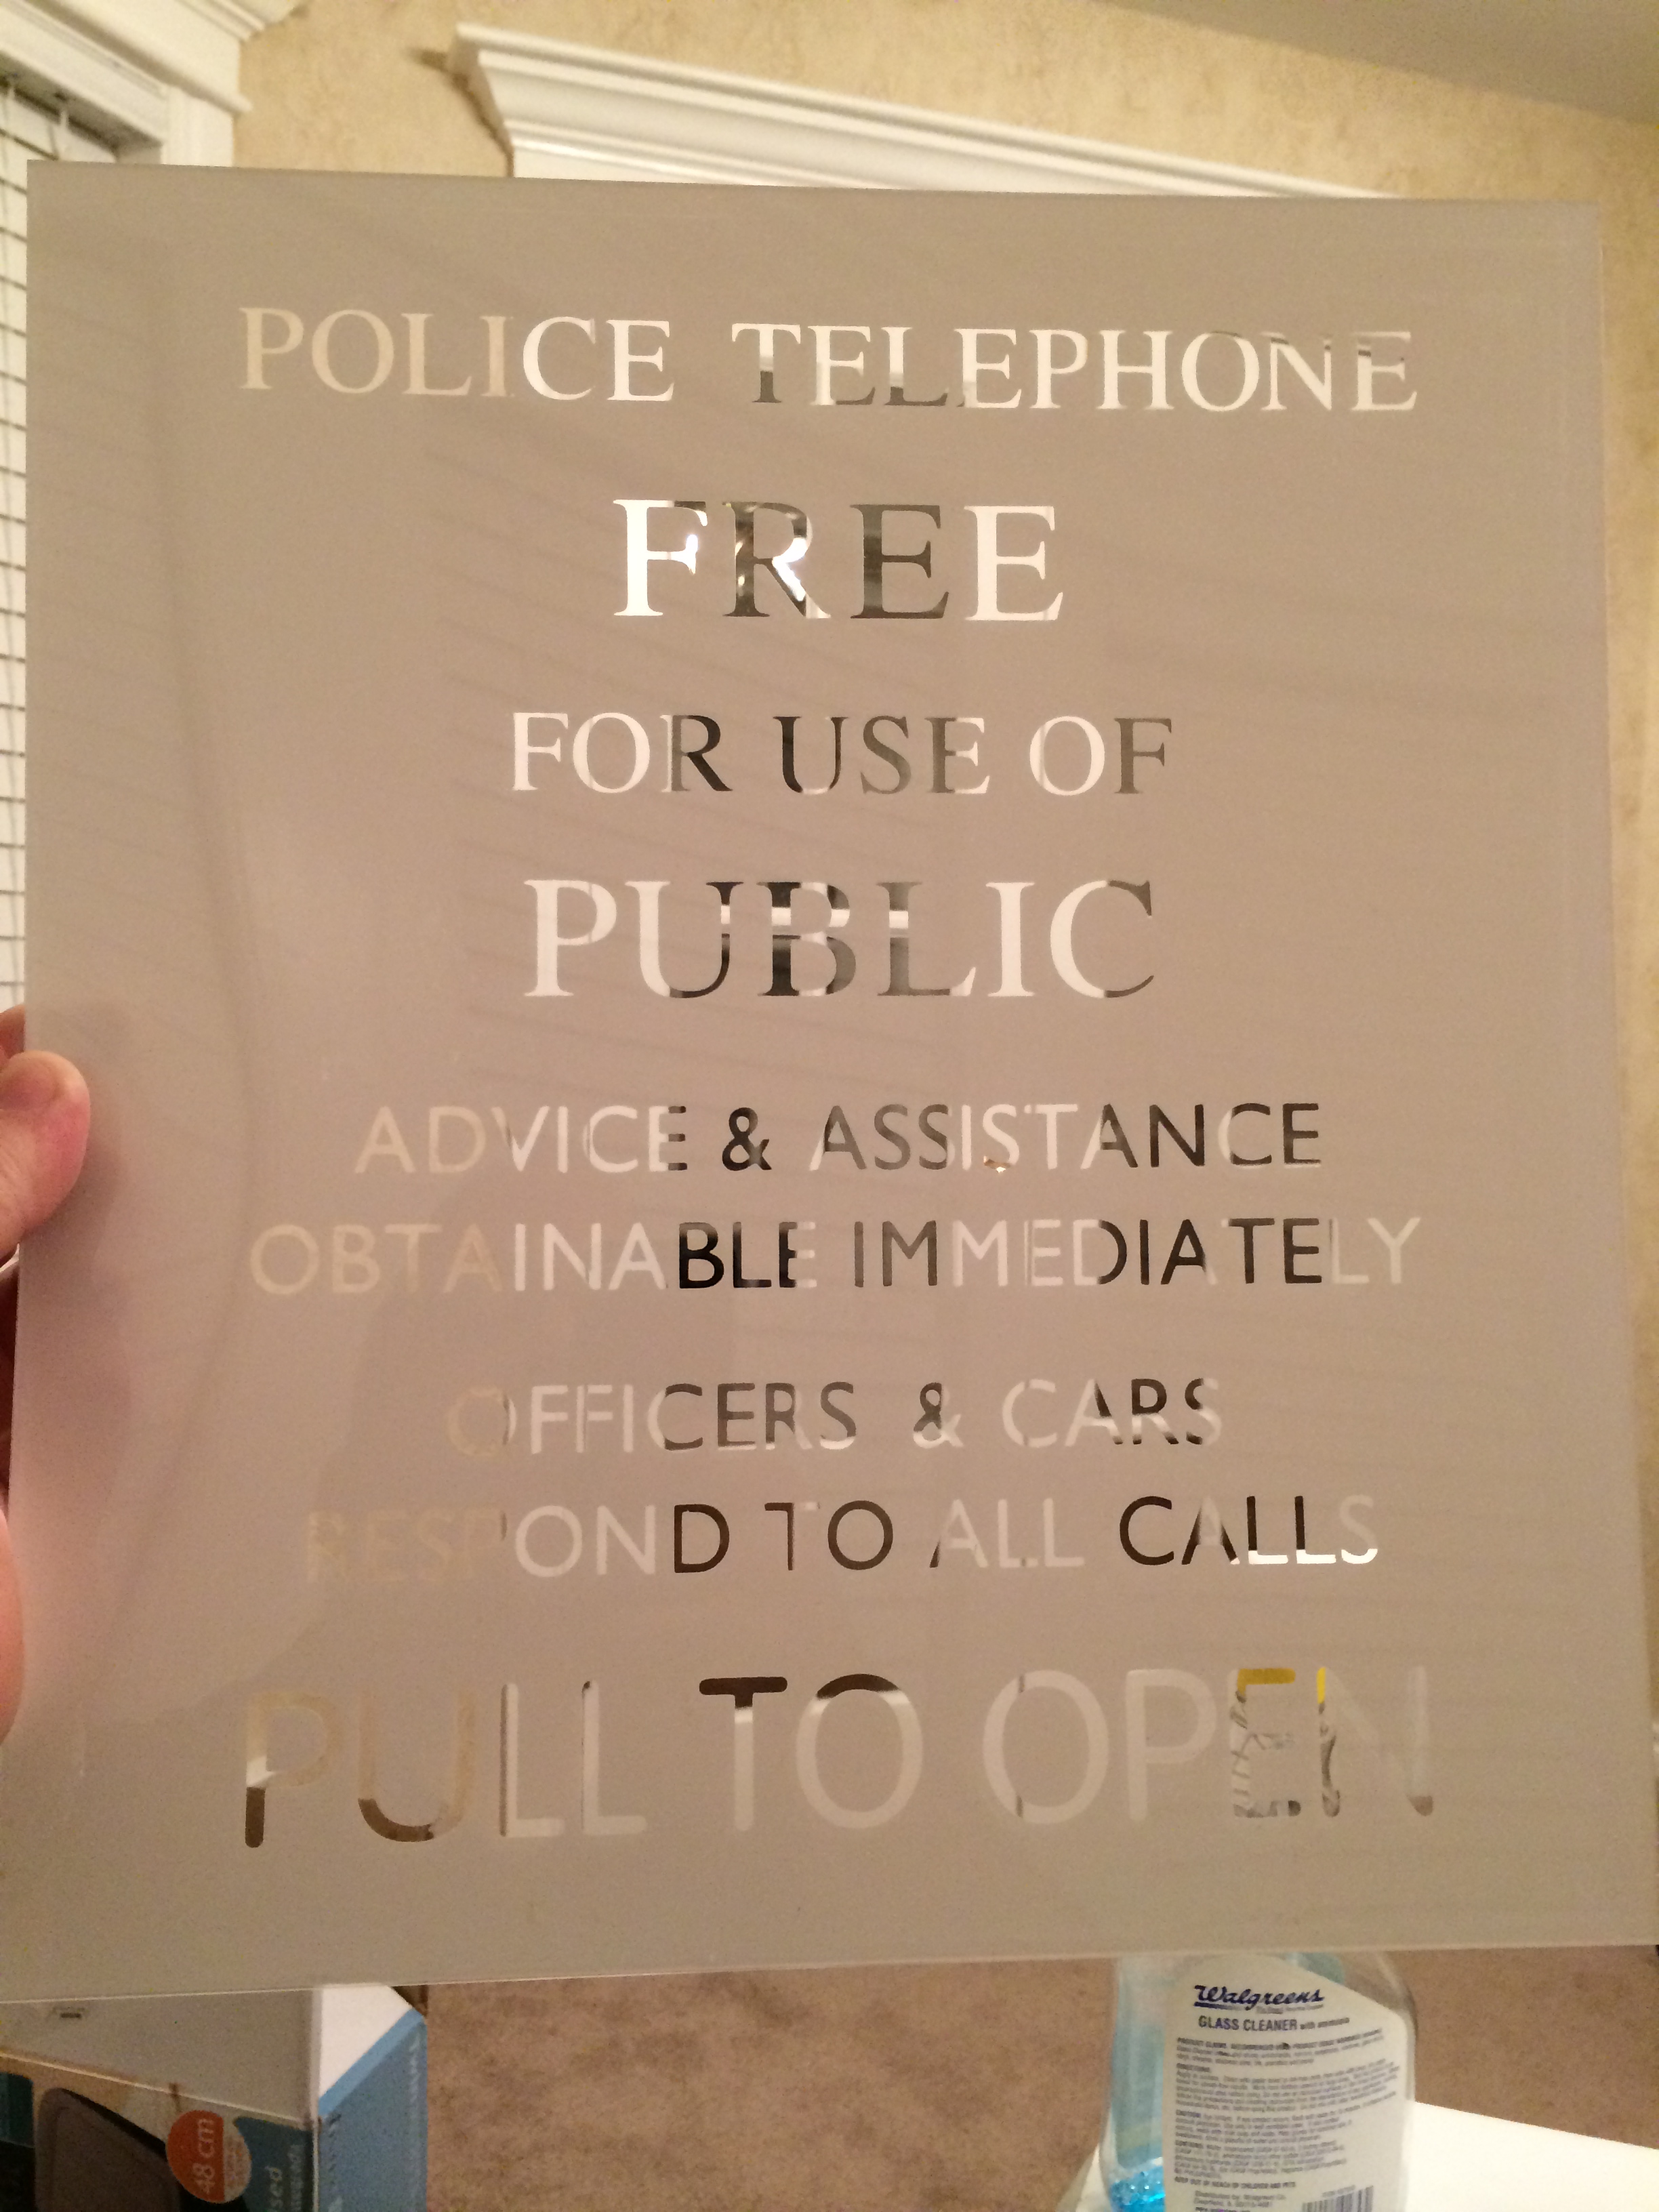 POLICE TELEPHONE
FREE
FOR USE OF
PUBLIC
ADVICE & ASSISTANCE
OBTAINABLE IMMEDIATELY
OFFICERS & CARS
RESPOND TO ALL CALLS
PULL TO OPEN
Walgreens
GLASS CLEANER with ammonia
48 cm